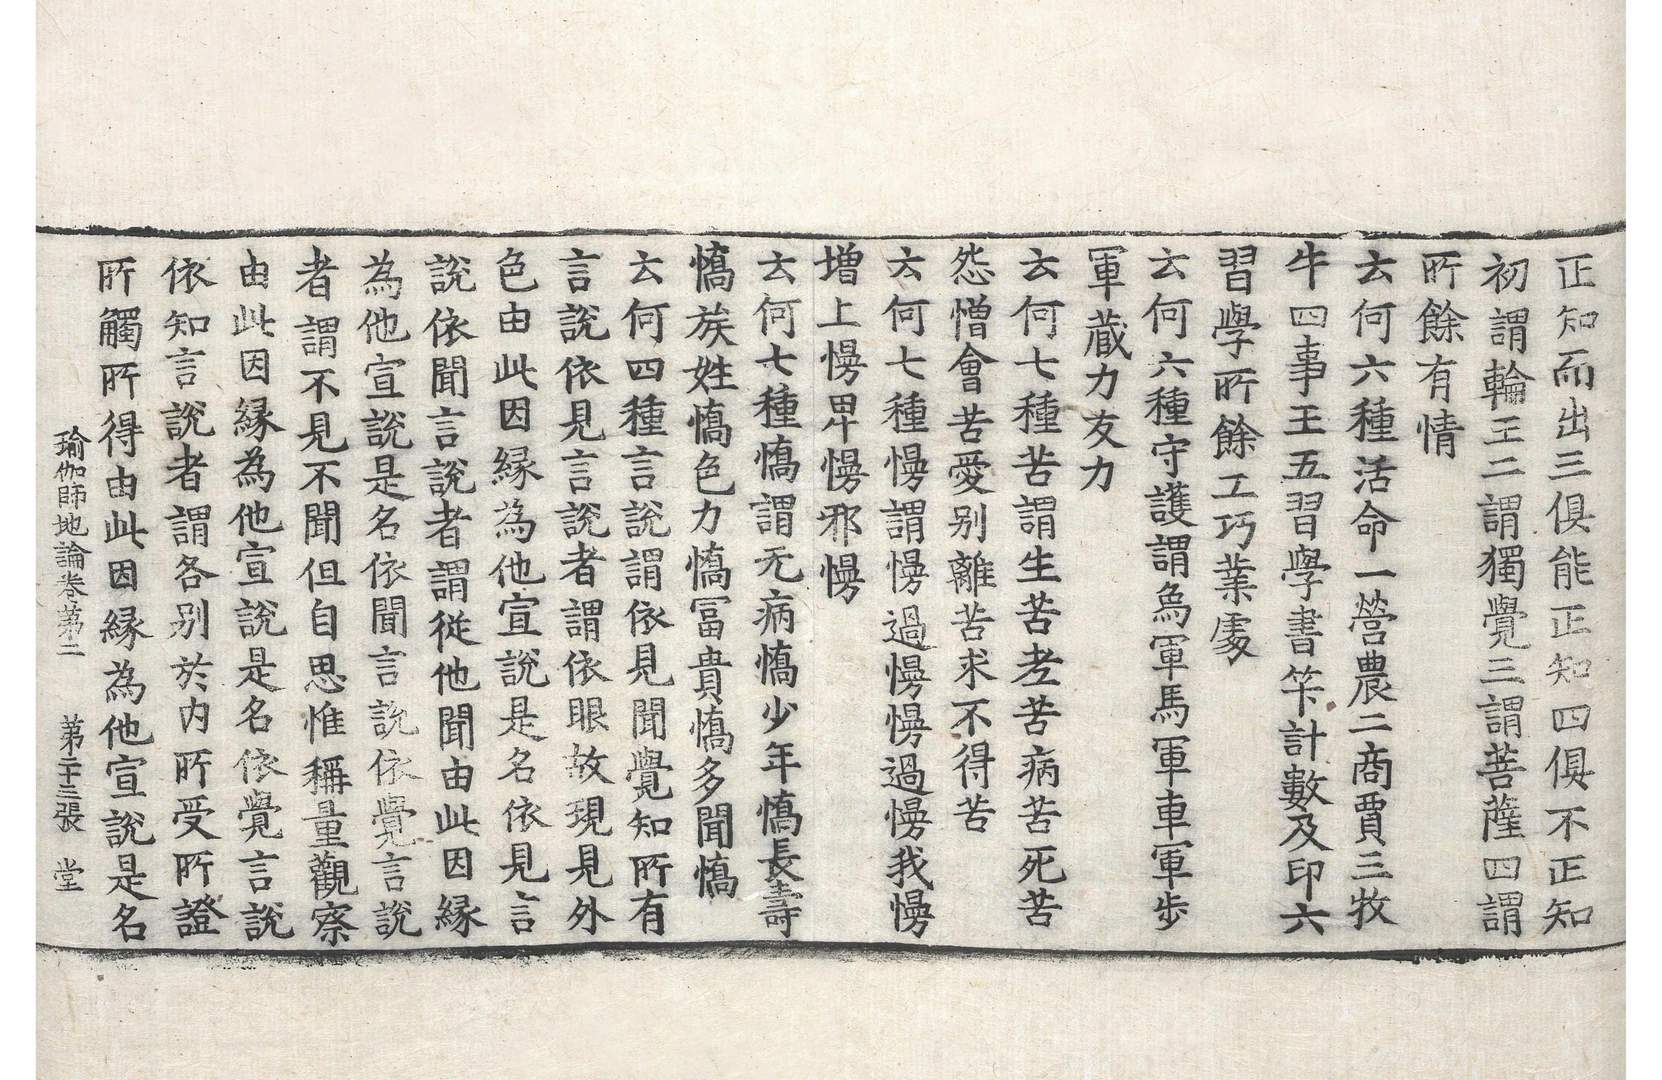 正知而出三俱能正知四俱不正知
初謂輪王二謂獨覺三謂菩薩四謂
所餘有情
云何六種活命一營農二商賈三牧
牛四事王五習學書筭計數及印六
習學所餘工巧業處
云何六種守護謂烏軍馬軍車軍步
軍藏力友力
云何七種苦謂生苦老苦病苦死苦
怨憎會苦愛別離苦求不得苦
云何七種慢謂慢過慢慢過慢我慢
增上慢卑慢邪慢
云何七種憍謂无病憍少年憍長壽
憍族姓憍色力憍冨貴憍多聞憍
云何四種言說謂依見聞覺知所有
言說依見言說者謂依眼故現見外
色由此因縁為他宣說是名依見言
說依聞言說者謂從他聞由此因縁
為他宣說是名依聞言說依覺言說
者謂不見不聞但自思惟稱量觀察
由此因縁為他宣說是名依覺言說
依知言說者謂各別於內所受所證
所觸所得由此因縁為他宣說是名
瑜伽師地論卷第二　第二十三張　堂